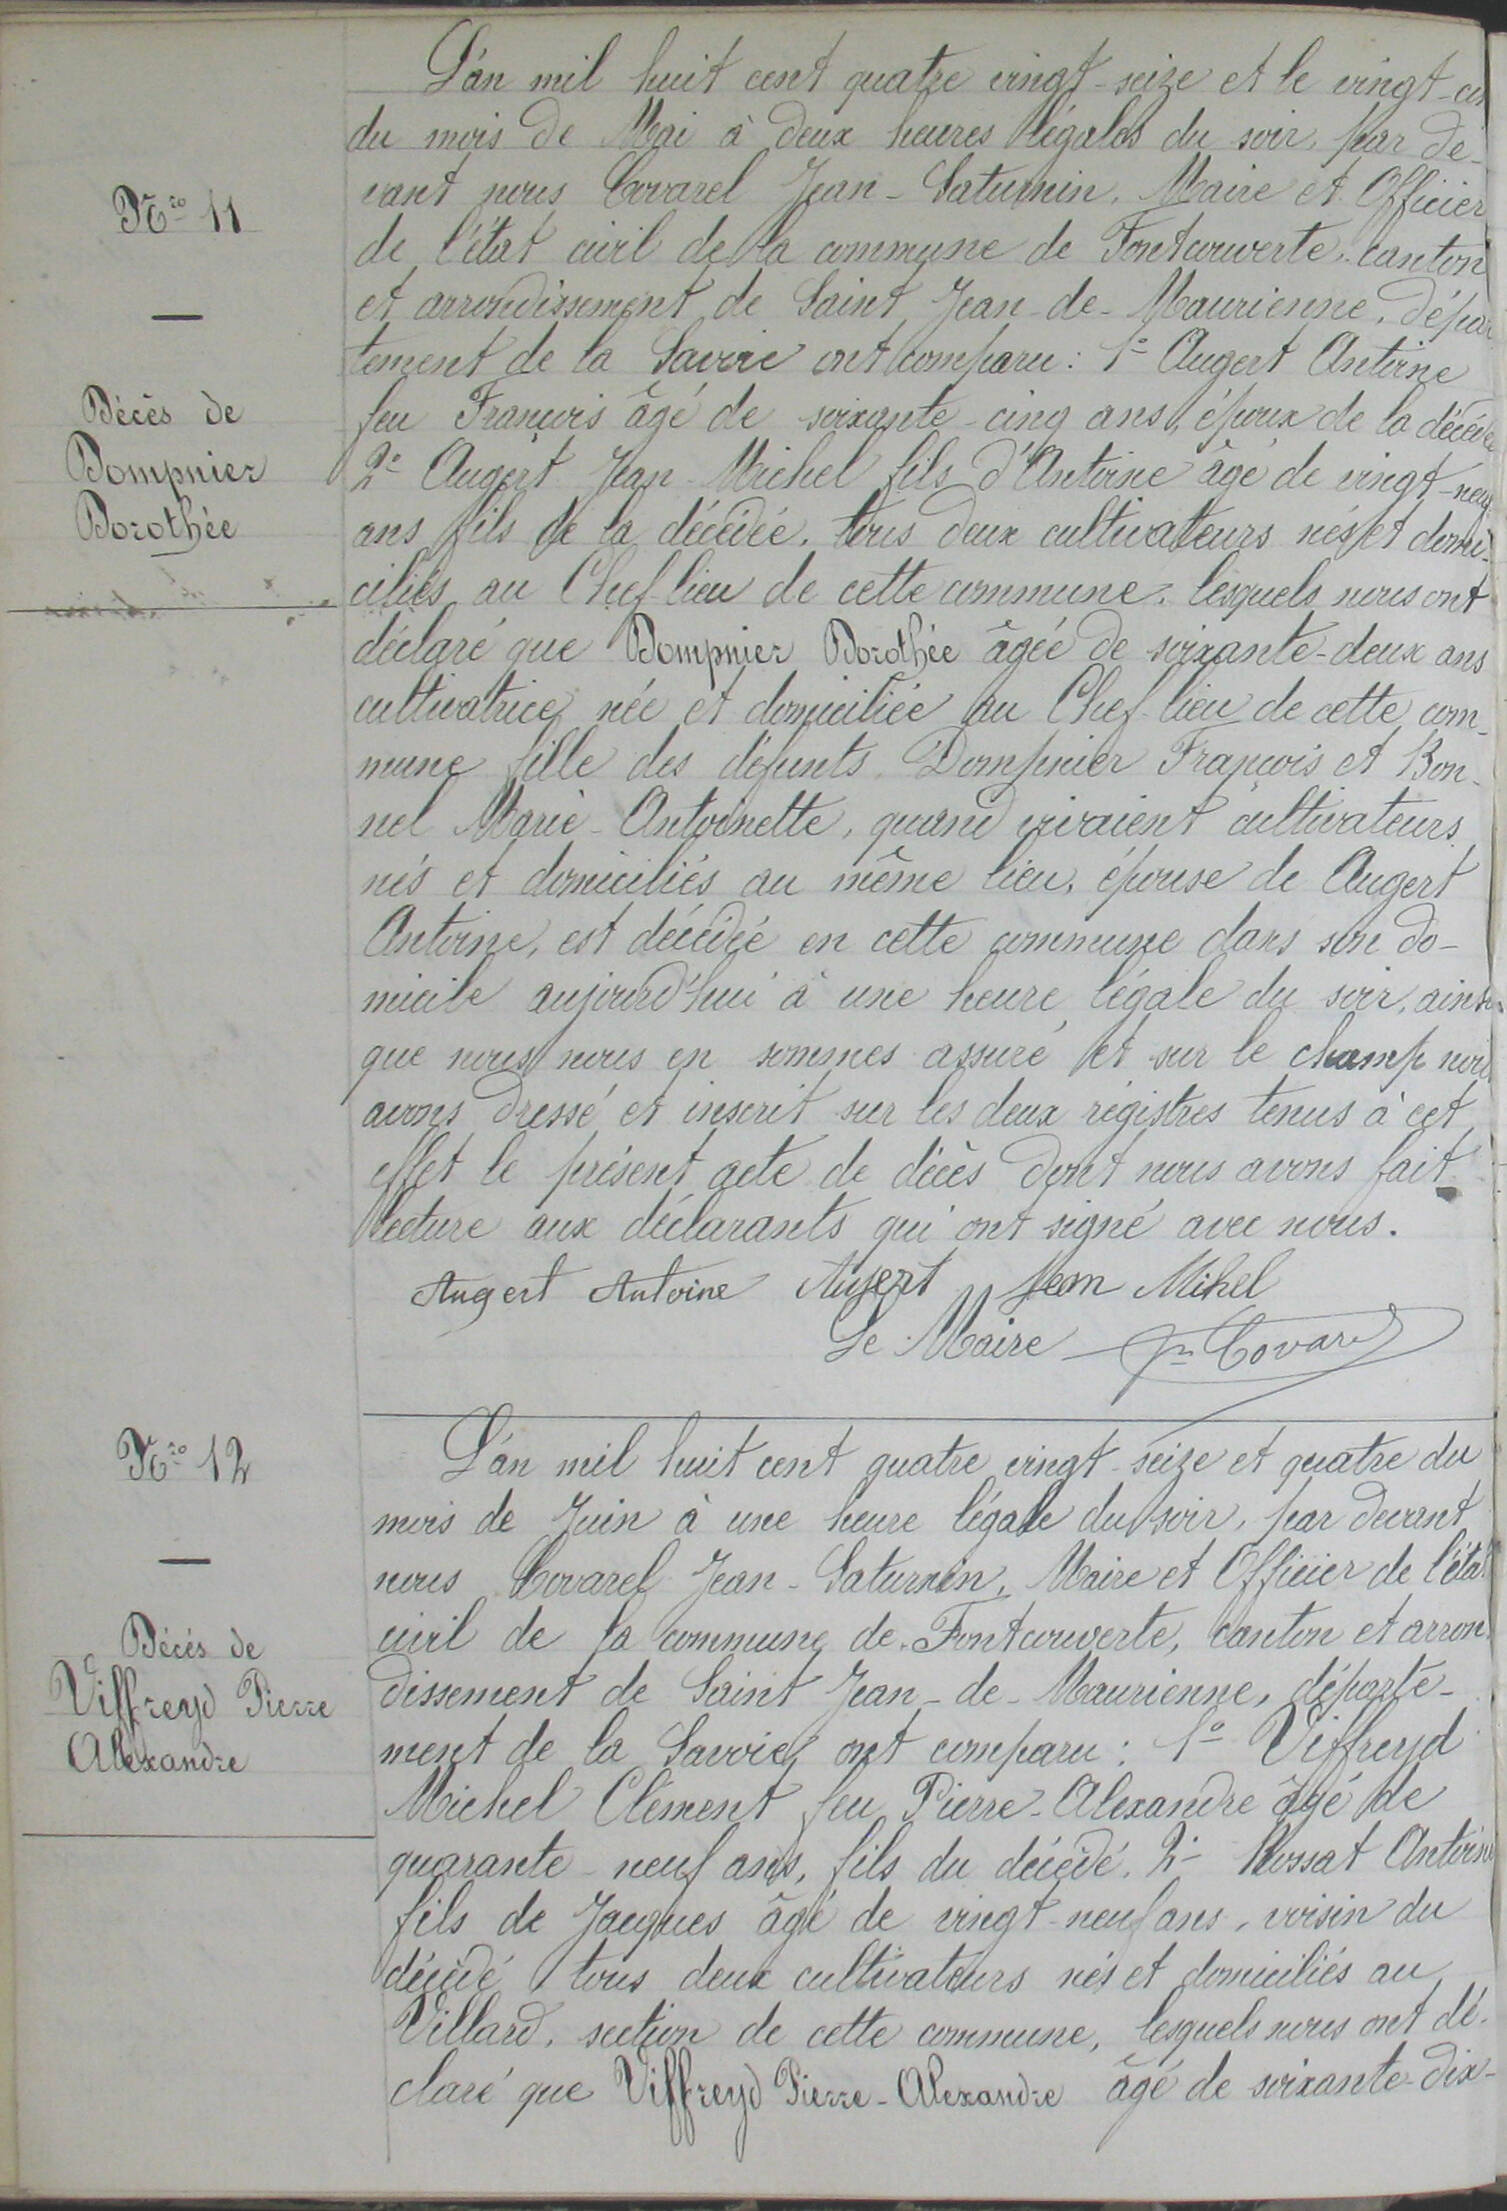 Nro 11
Décès de
Dompnier
Dorothée
L'an mil huit cent quatre vingt-seize et le
du mois de Mai à deux heures légales du soir, par de-
vant nous Covarel Jean-Saturnin, Maire et Officier
de l'état civil de la commune de Fontcouverte, canton
et arrondissement de Saint Jean-de-Maurienne, dépar
tement de la Savoie ont comparu: 1º Augert Antoine
feu François âgé de soixante-cinq ans, époux de la décédée
2º Augert Jean-Michel fils d'Antoine âgé de vingt-neuf
ans fils de la décédée, tous deux cultivateurs nés et domi-
ciliés au Chef-lieu de cette commune, lesquels nous ont
déclaré que Dompnier Dorothée âgée de soixante-deux ans
cultivatrice, née et domiciliée au Chef-lieu de cette com-
mune fille des défunts Dompnier François et Bon-
nel Marie-Antoinette, quand vivaient cultivateurs
nés et domiciliés au même lieu, épouse de Augert
Antoine, est décédée en cette commune dans son do-
micile aujourd'hui à une heure légale du soir, ainsi
que nous nous en sommes assuré et sur le champ nous
avons dressé et inscrit sur les deux régistres tenus à cet
effet le présent acte de décès dont nous avons fait
lecture aux déclarants qui ont signé avec nous.
Augert Antoine Augert Jean Mihel
Le Maire Jn Covarel
Nro 12
Décés de
Viffreyd Pierre
Alexandre
L'an mil huit cent quatre vingt-seize et quatre du
mois de Juin à une heure légale du soir, par devant
nous Covarel Jean-Saturnin, Maire et Officier de l'état
civil de la commune de Fontcouverte, canton et arron
dissement de Saint Jean-de-Maurienne, départe-
ment de la Savoie, ont comparu: 1º Viffreyd
Michel Clément feu Pierre-Alexandre âgé de
quarante-neuf ans, fils du décédé, 2º Rossat Antoine
fils de Jacques âgé de vingt-neuf ans, voisin du
décédé tous deux cultivateurs nés et domiciliés au
Villard, section de cette commune, lesquels nous ont dé-
claré que Viffreyd Pierre-Alexandre âgé de soixante-dix-